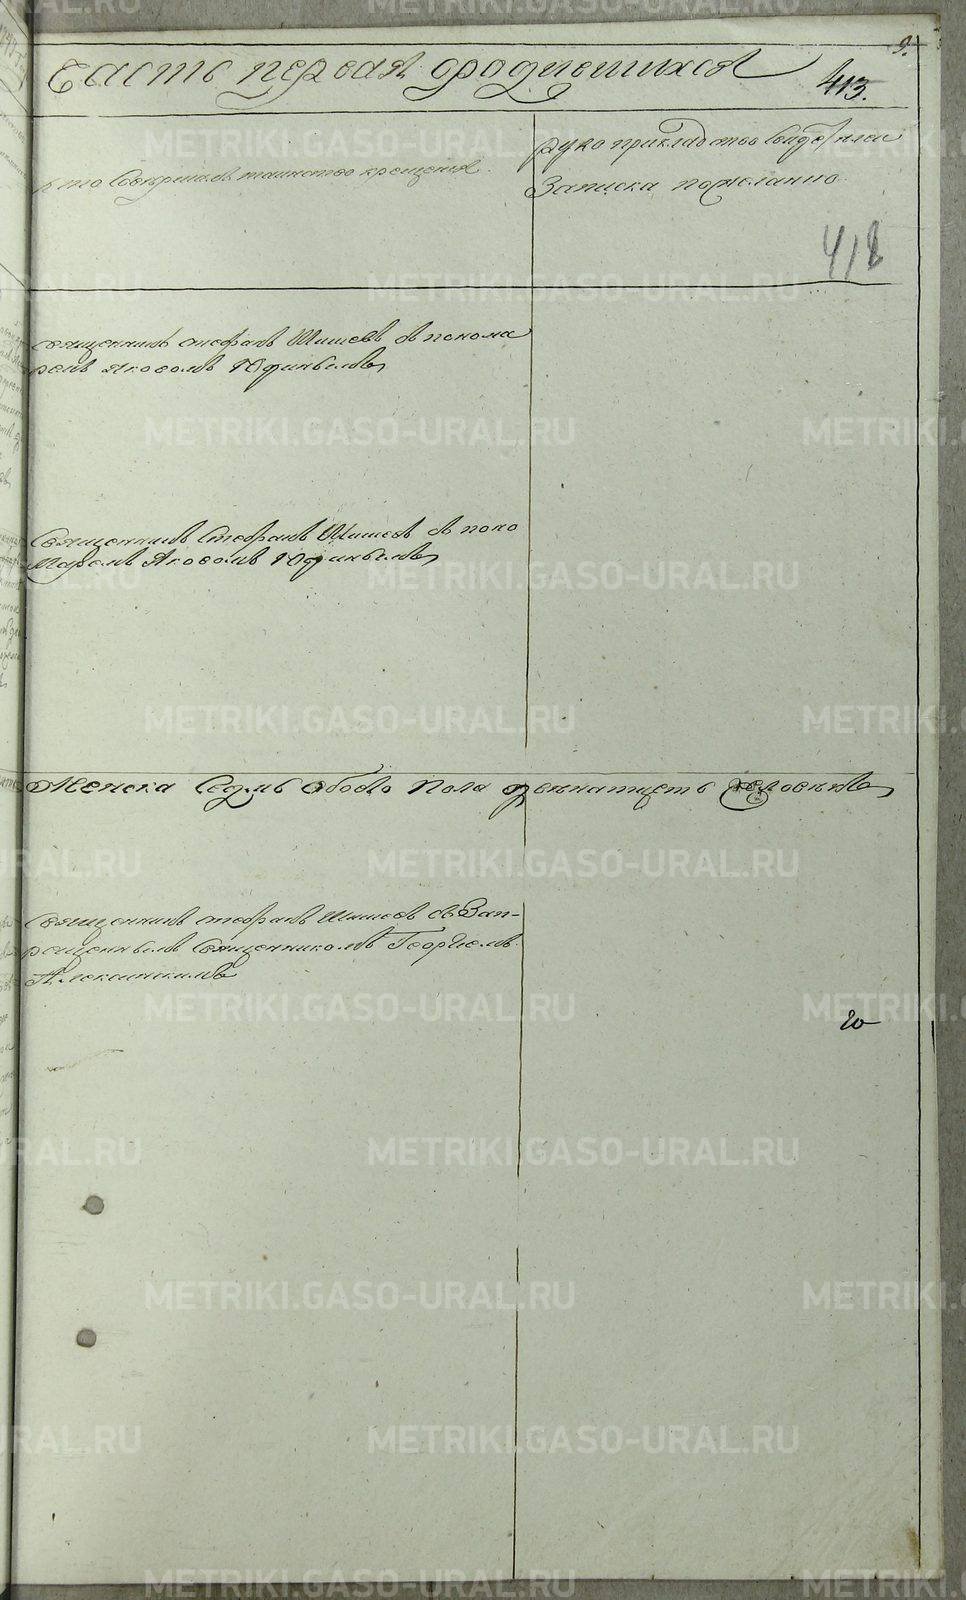 9.
Часть первая ородившихся
413.
кто совершалъ таинство крещения
рукоприкладство свидетелей
Записка пожеланию
418
Священникъ стефанъ Шишевъ съ понома
ремъ Яковомъ Юдинымъ
Священникъ Стефанъ Шишевъ съ поно
Маремъ Яковомъ Юдинымъ
Женска Седмь Обоего Пола двенатцеть человекъ
Священникъ стефанъ Шишевъ съ Зап-
рещеннымъ Священникомъ Георгиемъ
Алексинскимъ
20
METRIKI.GASO-URAL.RU